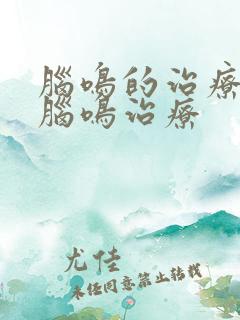 腦鳴的治療
腦鳴治療
尤佳
未经同意禁止转载